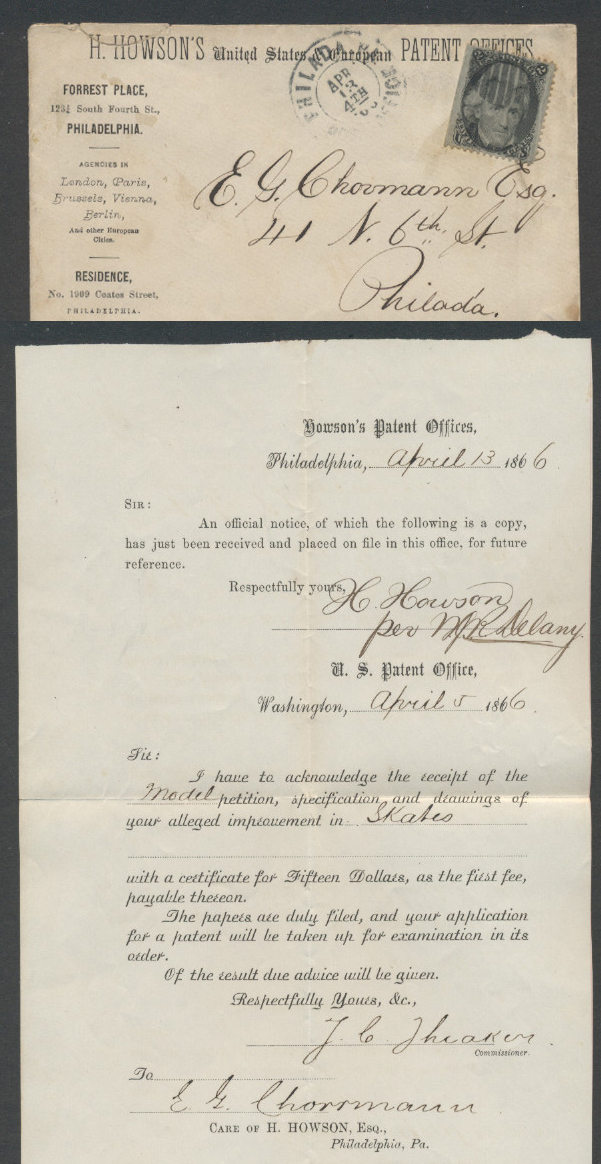 H. HOWSON'S United States & European PATENT OFFICES
FORREST PLACE,
123½ South Fourth St.,
PHILADELPHIA.
AGENCIES IN
London, Paris,
Brussels, Vienna,
Berlin,
And other European
Cities.
RESIDENCE,
No. 1909 Coates Street,
PHILADELPHIA.
PHILADA
APR
13
4TH
E. G. Chormann Esq.
41 N. 6th St.
Philada.
Howson's Patent Offices,
Philadelphia, April 13 1866
SIR:
An official notice, of which the following is a copy,
has just been received and placed on file in this office, for future
reference.
Respectfully yours,
H. Howson
per W R Delany.
U. S. Patent Office,
Washington, April 5 1866.
Sir:
I have to acknowledge the receipt of the
Model petition, specification and drawings of
your alleged improvement in Skates
with a certificate for Fifteen Dollars, as the first fee,
payable thereon.
The papers are duly filed, and your application
for a patent will be taken up for examination in its
order.
Of the result due advice will be given.
Respectfully Yours, &c.,
T. C. Theaker.
Commissioner.
To
E. G. Chormann
CARE OF H. HOWSON, ESQ.,
Philadelphia, Pa.